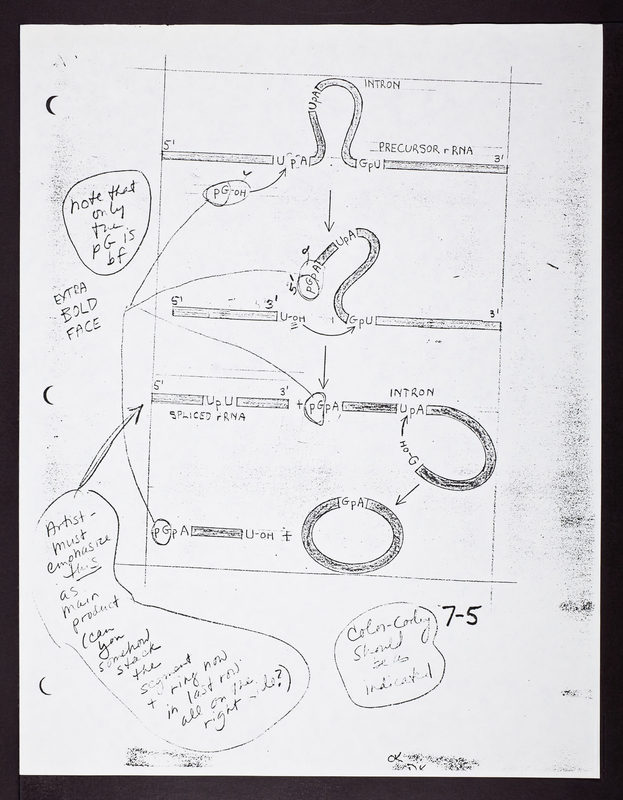 INTRON
UpA
5'
PRECURSOR rRNA
3'
UpA
GpU
pG-OH
note that
only
the
pG is
bf
UpA
pGpA
5'
EXTRA
BOLD
FACE
5'
3'
3'
U-OH
GpU
5'
3'
INTRON
UpU
+
pGpA
UpA
SPLICED rRNA
HO-G
GpA
pGpA
U-OH
+
Artist-
must
emphasize
this
as
main
product
(can
you
somehow
stack
the
segment
+ ring now
in last row
all on the
right side?)
7-5
Color-Coding
should
be as
indicated
OK